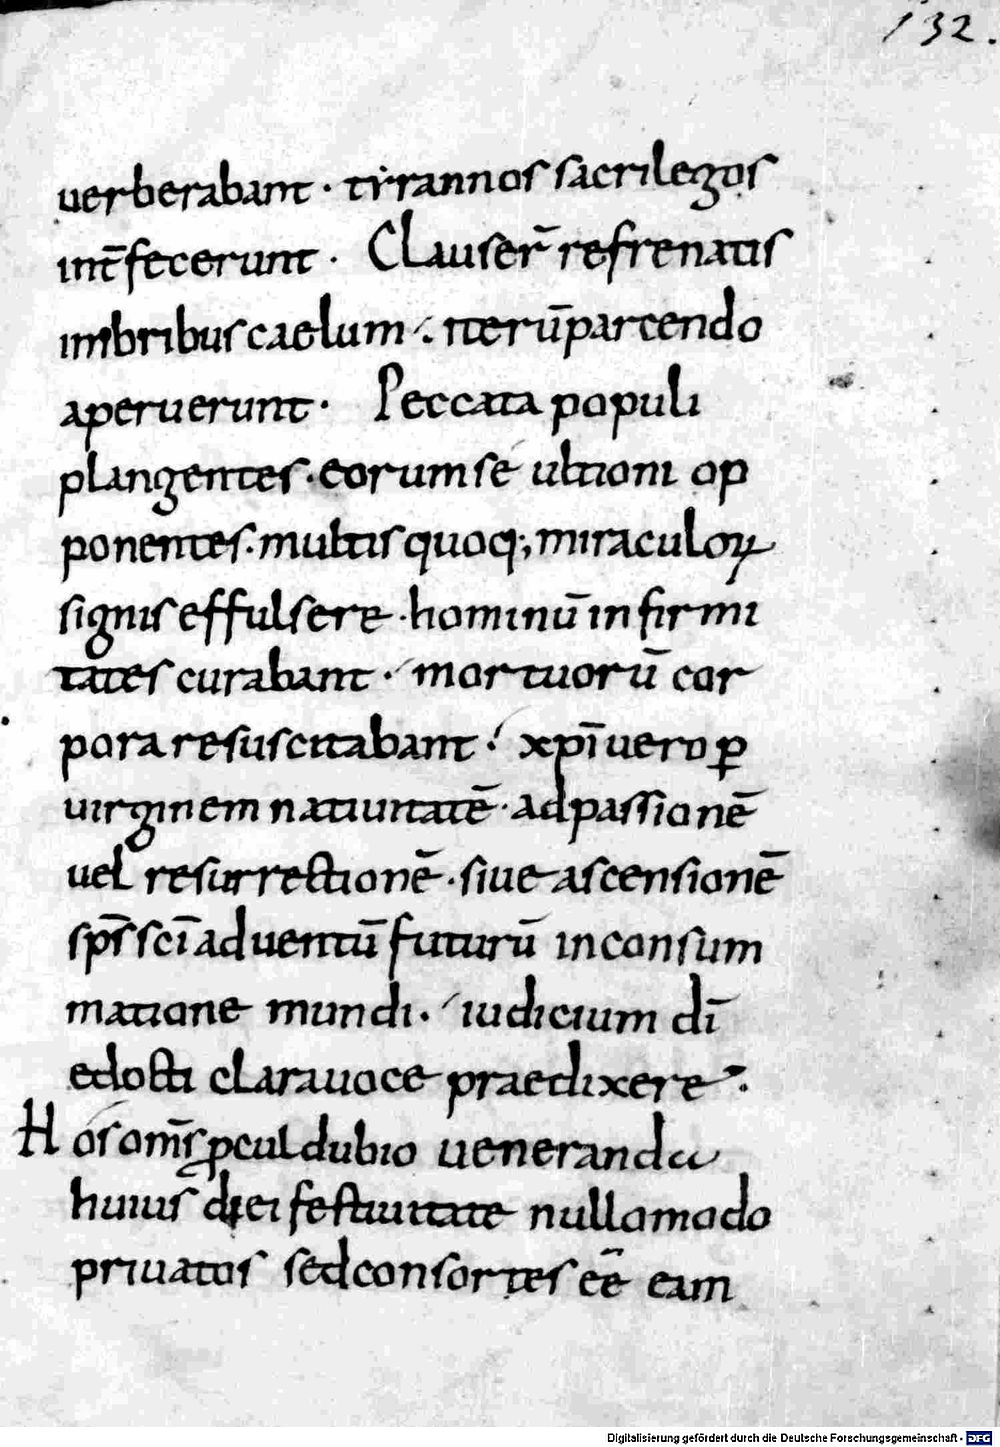 132.
uerberabant · tyrannos sacrilegos
int̄fecerunt · Clauser̄ refrenatis
imbribus caelum ·́ iterū parcendo
aperuerunt · Peccata populi
plangentes · eorum sé ultioni op
ponentes · multis quoq; miraculoꝝ
signis effulsere · hominū infirmi
tates curabant ·́ mortuorū cor
pora resuscitabant ·́ xpī uero ꝑ
uirginem natiuitatē · ad passionē
uel resurrectionē · siue ascensionē
sp̄s sc̄i aduentū futurū in consum
matione mundi ·́ iudicium dī
edocti clara uoce praedixere ·
Hós om̄s ꝓcul dubio ueneranda
huius diei festiuitate nullo modo
priuatos sed consortes eē̄ eam
Digitalisierung gefördert durch die Deutsche Forschungsgemeinschaft - DFG